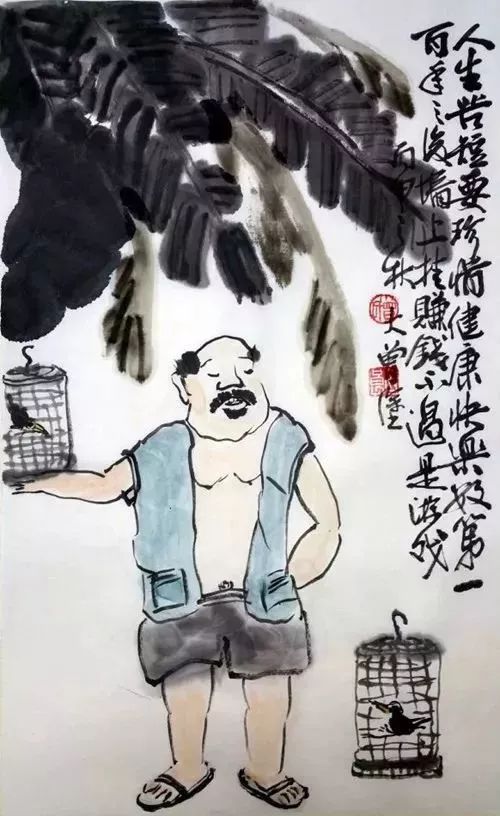 人生苦短要珍惜健康快樂放第一
百年之後墙上挂賺錢不過是游戏
丙申之秋 大曾